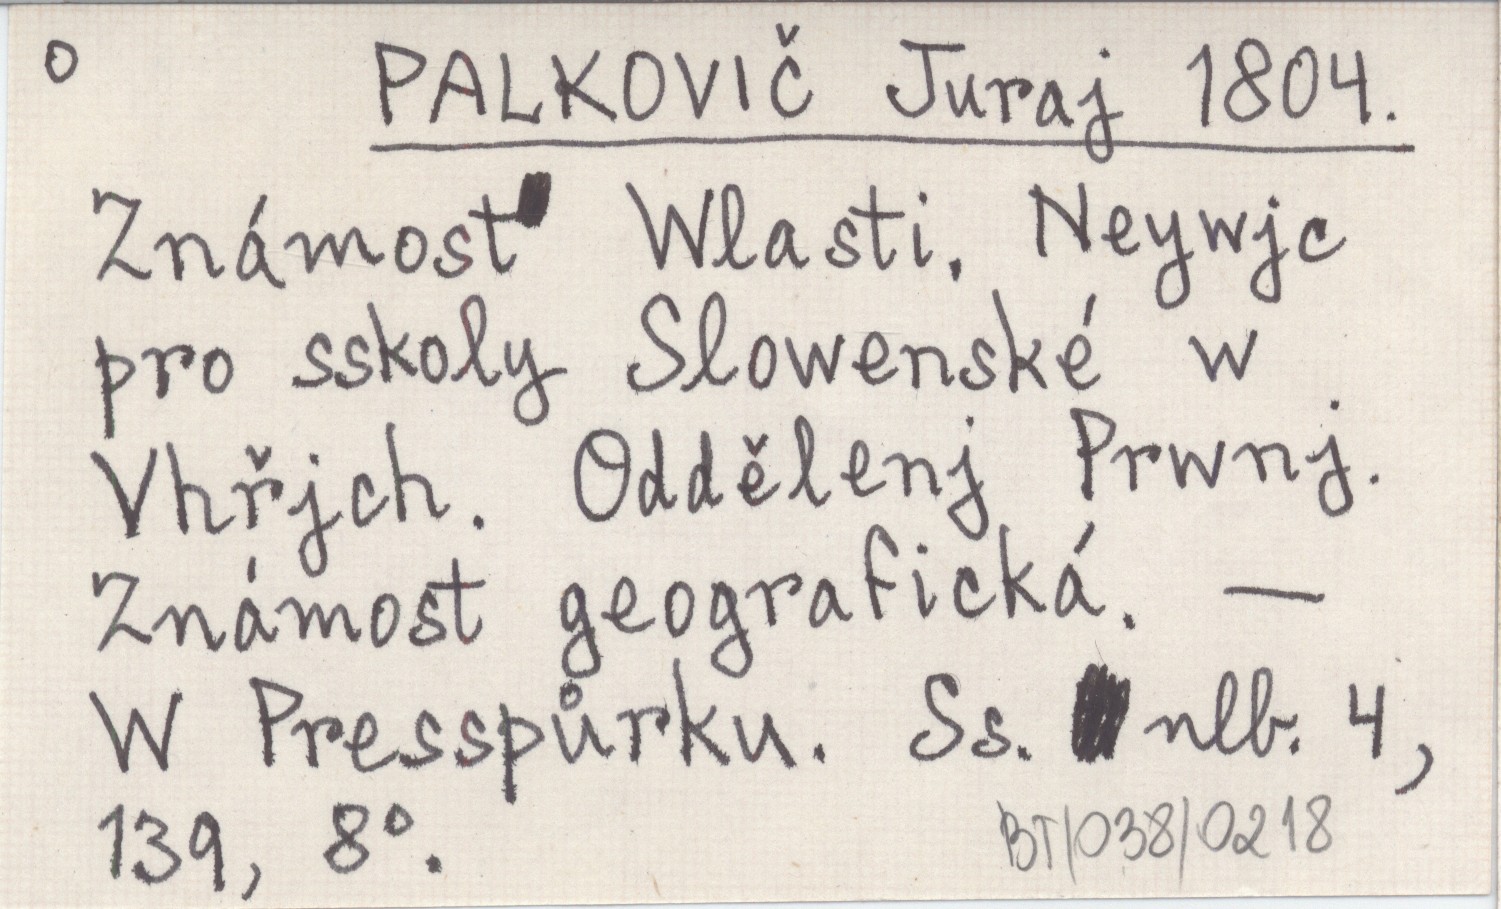 o PALKOVIČ Juraj 1804.
Známost Wlasti. Neywjc
pro sskoly Slowenské w
Vhřjch. Oddělenj Prwnj.
Známost geografická. —
W Presspůrku. Ss. nlb. 4,
139, 8°.
BT/038/0218